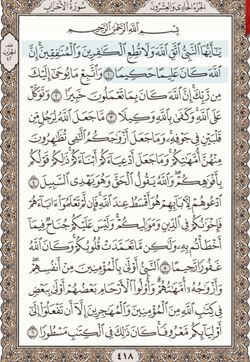 الجزء الحادي والعشرون
سورة الأحزاب
بِسْمِ اللَّهِ الرَّحْمَٰنِ الرَّحِيمِ
يَا أَيُّهَا النَّبِيُّ اتَّقِ اللَّهَ وَلَا تُطِعِ الْكَافِرِينَ وَالْمُنَافِقِينَ إِنَّ
اللَّهَ كَانَ عَلِيمًا حَكِيمًا ١ وَاتَّبِعْ مَا يُوحَىٰ إِلَيْكَ
مِن رَّبِّكَ إِنَّ اللَّهَ كَانَ بِمَا تَعْمَلُونَ خَبِيرًا ٢ وَتَوَكَّلْ
عَلَى اللَّهِ وَكَفَىٰ بِاللَّهِ وَكِيلًا ٣ مَّا جَعَلَ اللَّهُ لِرَجُلٍ مِّن
قَلْبَيْنِ فِي جَوْفِهِ وَمَا جَعَلَ أَزْوَاجَكُمُ اللَّائِي تُظَاهِرُونَ
مِنْهُنَّ أُمَّهَاتِكُمْ وَمَا جَعَلَ أَدْعِيَاءَكُمْ أَبْنَاءَكُمْ ذَٰلِكُمْ قَوْلُكُم
بِأَفْوَاهِكُمْ وَاللَّهُ يَقُولُ الْحَقَّ وَهُوَ يَهْدِي السَّبِيلَ ٤
ادْعُوهُمْ لِآبَائِهِمْ هُوَ أَقْسَطُ عِندَ اللَّهِ فَإِن لَّمْ تَعْلَمُوا آبَاءَهُمْ
فَإِخْوَانُكُمْ فِي الدِّينِ وَمَوَالِيكُمْ وَلَيْسَ عَلَيْكُمْ جُنَاحٌ فِيمَا
أَخْطَأْتُم بِهِ وَلَٰكِن مَّا تَعَمَّدَتْ قُلُوبُكُمْ وَكَانَ اللَّهُ
غَفُورًا رَّحِيمًا ٥ النَّبِيُّ أَوْلَىٰ بِالْمُؤْمِنِينَ مِنْ أَنفُسِهِمْ
وَأَزْوَاجُهُ أُمَّهَاتُهُمْ وَأُولُو الْأَرْحَامِ بَعْضُهُمْ أَوْلَىٰ بِبَعْضٍ
فِي كِتَابِ اللَّهِ مِنَ الْمُؤْمِنِينَ وَالْمُهَاجِرِينَ إِلَّا أَن تَفْعَلُوا إِلَىٰ
أَوْلِيَائِكُم مَّعْرُوفًا كَانَ ذَٰلِكَ فِي الْكِتَابِ مَسْطُورًا ٦
٤١٨